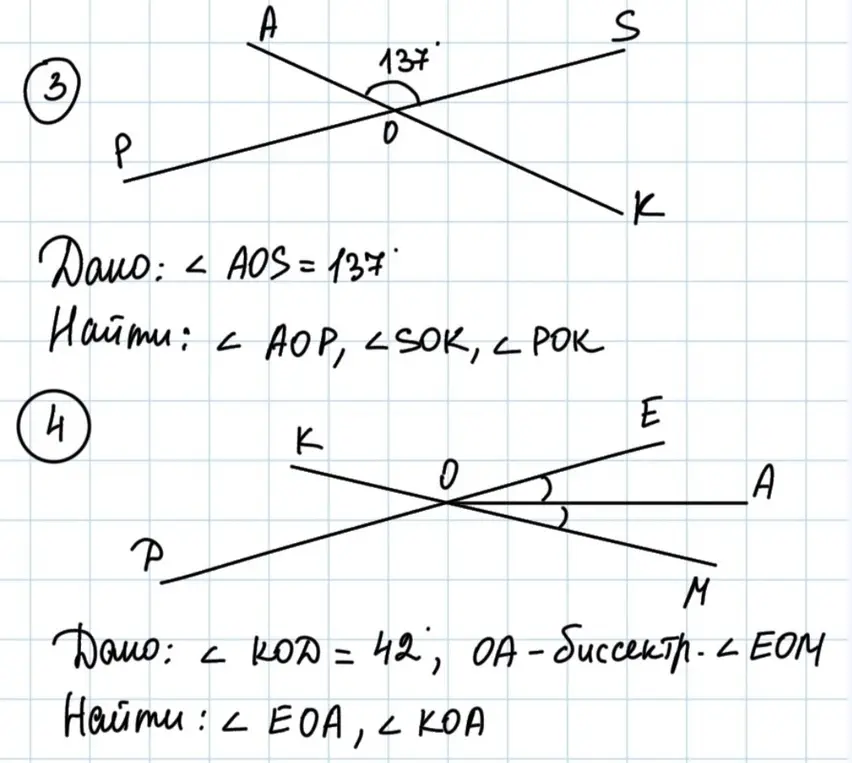 A
S
137°
3
O
P
K
Дано: ∠ AOS = 137°
Найти: ∠ AOP, ∠SOK, ∠ POK
4
E
K
O
A
P
M
Дано: ∠ KOD = 42°, OA - биссектр. ∠ EOM
Найти: ∠ EOA, ∠ KOA